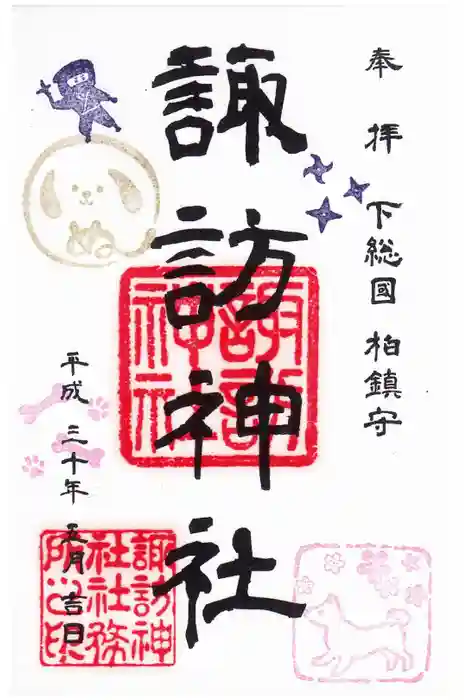 奉拝 下総國 柏鎮守
諏訪神社
諏訪神社
平成三十年五月吉日
諏訪神
社社務
所之印